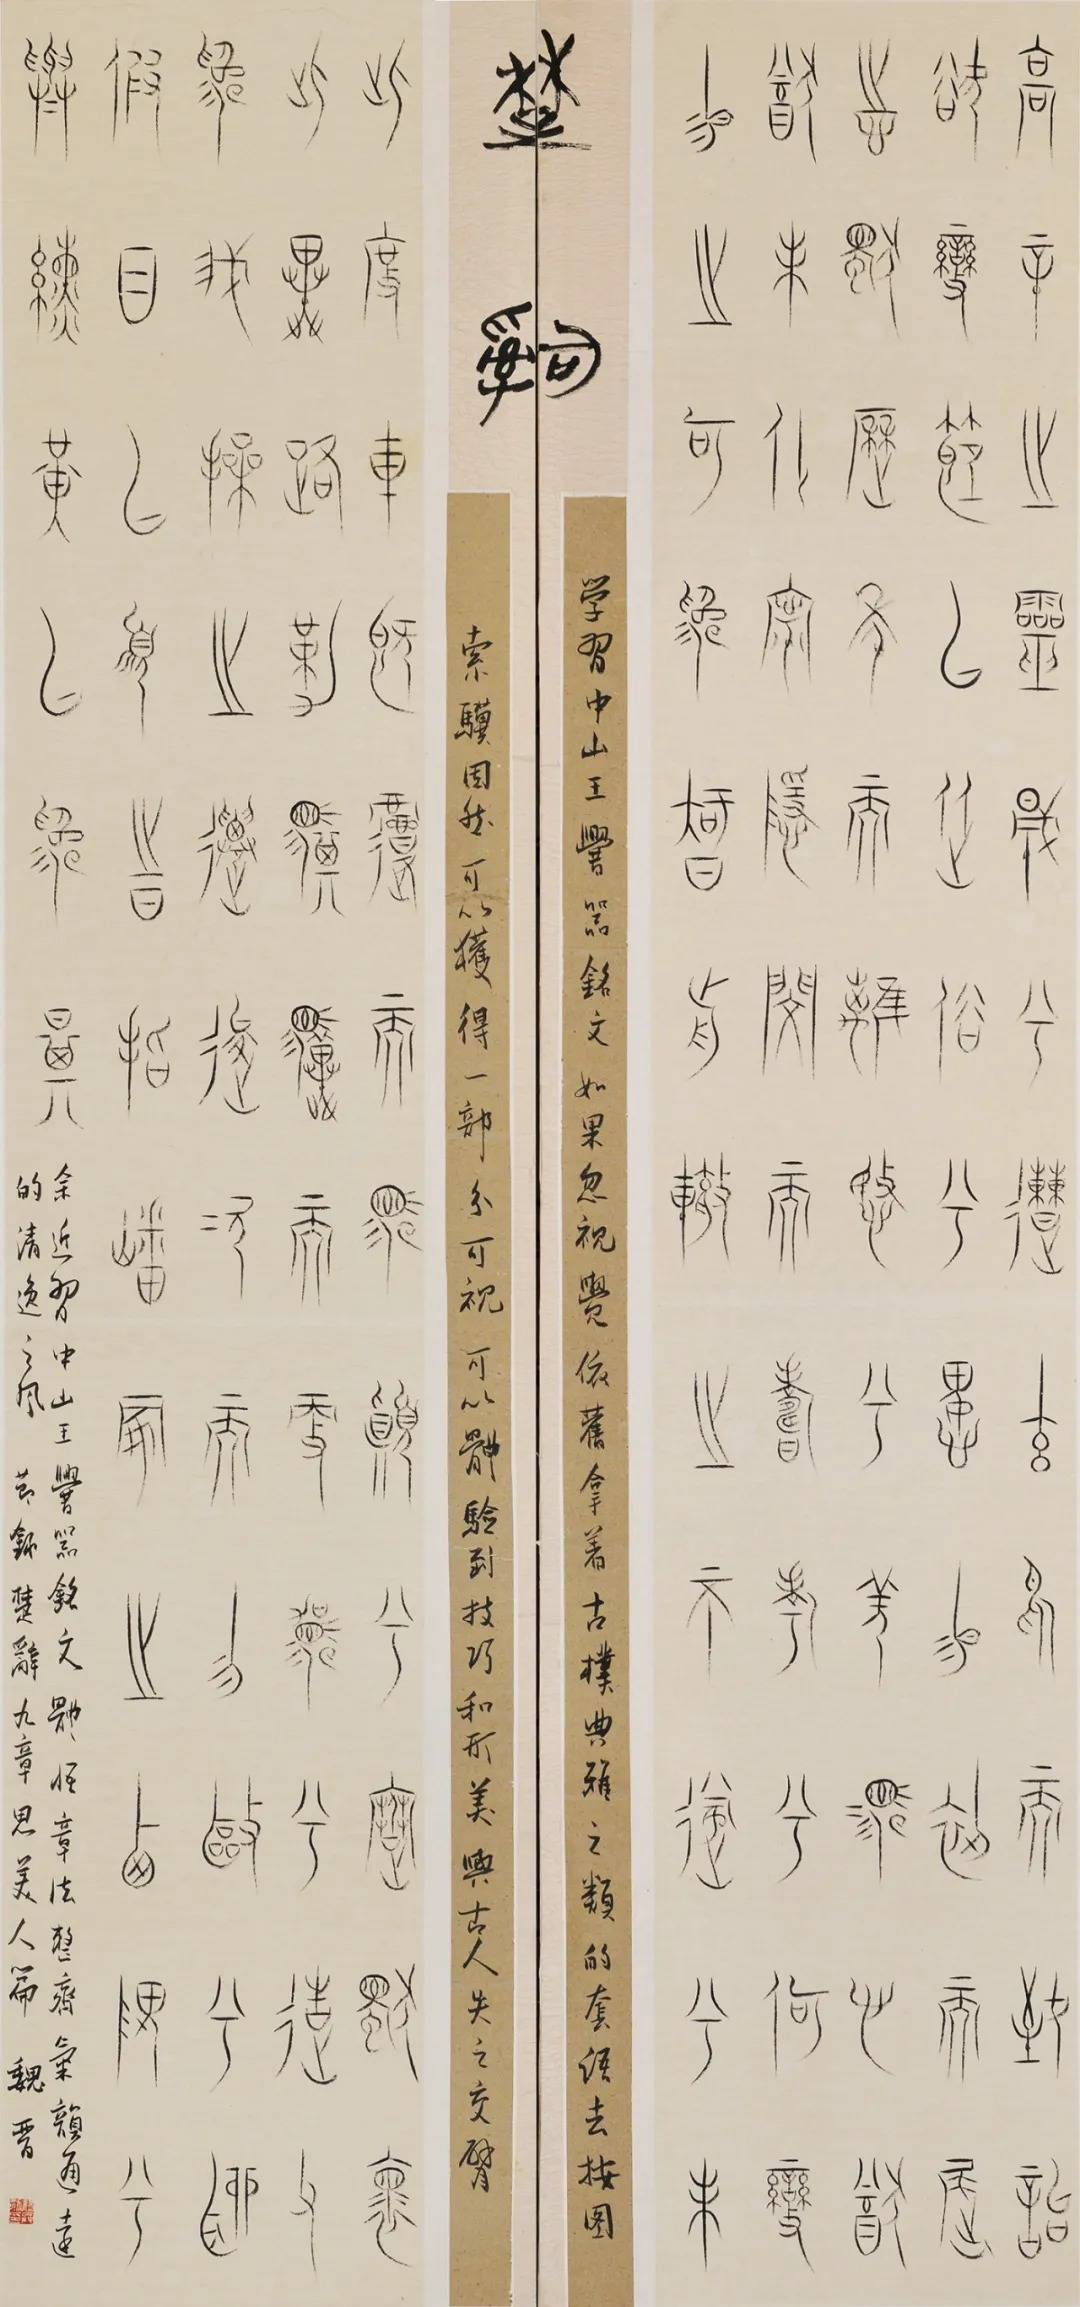 楚辭
高辛之靈晟兮遭玄鳥而致詒
欲變節以從俗兮媿易初而屈
志獨歷年而離愍兮羌馮心猶
猶未化寧隱閔而壽考兮何變
易之可為智前轍之不遂兮未
学習中山王舋器銘文如果忽視覺依舊拿著古樸典雅之類的套語去按图
索驥固然可以獲得一部分可視可以體驗到技巧和形美與古人失之交臂
此度車既覆而馬顛兮蹇獨懷
此異路勒騏驥而更駕兮造父
為我操之遷逡次而勿驅兮聊
假日以須時指嶓冢之西隈兮
與纁黃以為期
余近習中山王舋器銘文體悟章法整齊氣韻通達
的清逸之風 节錄楚辭九章思美人篇 魏晋